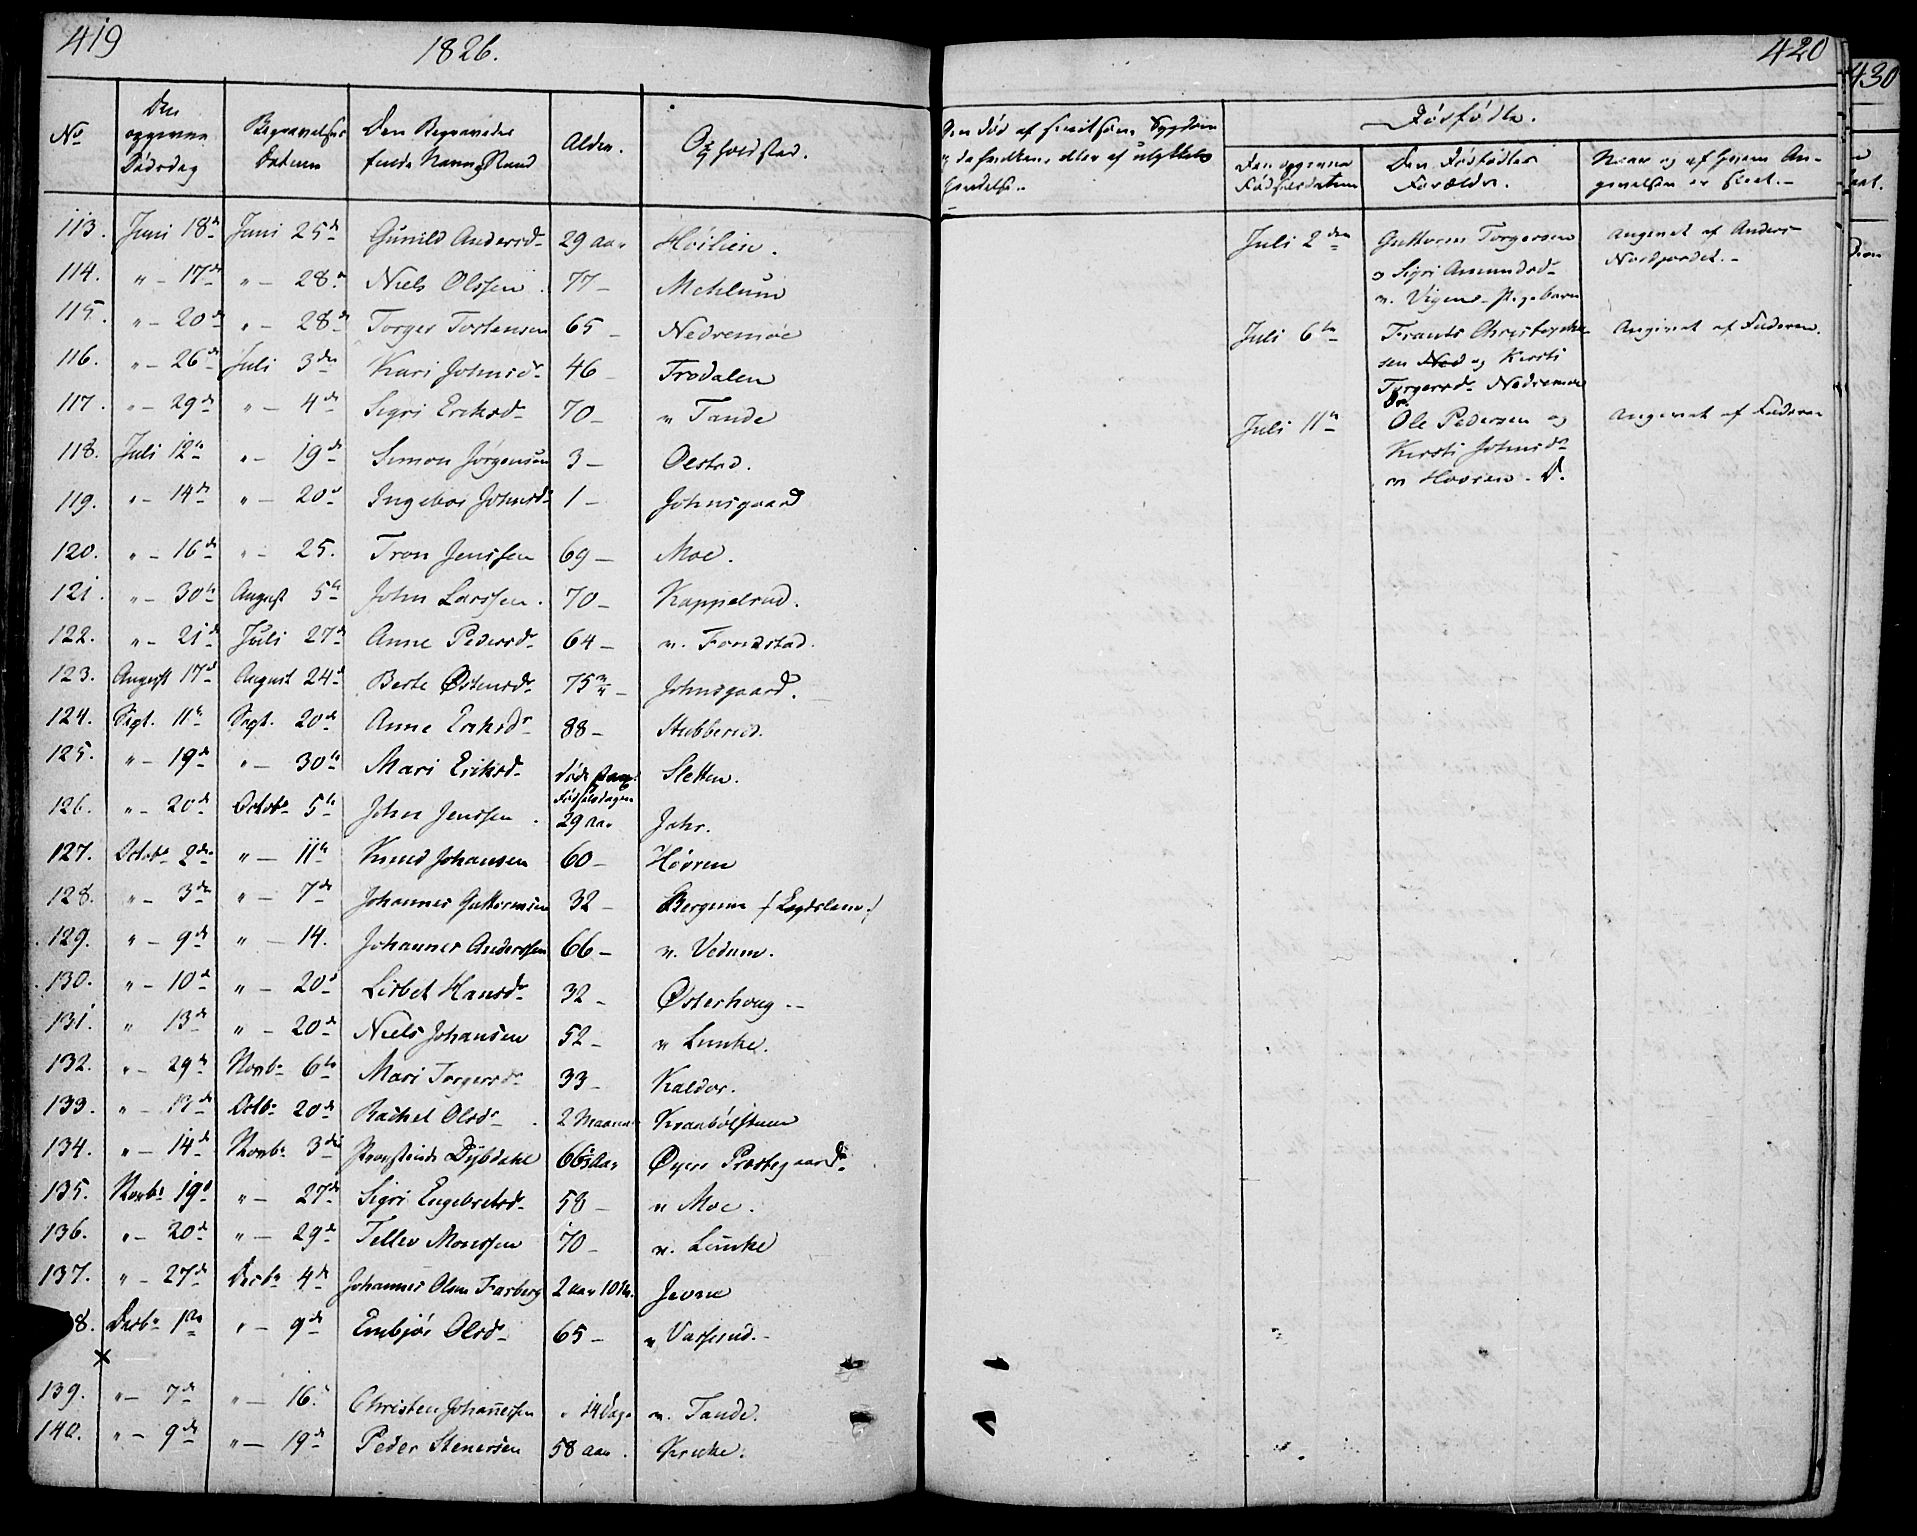 419
1826.
No
Den opgivne Dødsdag
Begravelses Datum
Den Begravedes fulde Navn, Stand
Alder.
Opholdsted.
113. Juni 18de Juni 25de Gunild Andersd. 29 aar Høilien.
114. " – 17de " – 28de Niels Olssen 77 – Mehlum
115. " – 20de " – 28de Torger Torstensen 65 – Nedremoe
116. " – 26de Juli 3die Kari Johnsdr 46 – Trodalen
117. " – 29de " – 4de Sigri Eriksdr 70 – n Tande
118. Juli 12te " – 19de Simon Jørgensen 3 – Oestad.
119. " – 14de " – 20de Ingebor Johnsdr 1 – Johnsgaard
120. " – 16de " – 25. Tron Jenssen 69 – Moe.
121. " – 30te August 5te John Larssen. 70 – Kappelrud.
122. " – 21de Juli 27de Anne Pedersdr 64 – n.
123. August 17de August 24de Berte Østensdr 75 – Johnsgaard.
124. Sept. 11te Sept. 20de Anne Eriksdr 88 – Stubberud.
125. " – 19de " – 30te Mari Eriksdr døde paa Fødselsdagen Sletten.
126. " – 20de Octobr 5te John Jenssen 29 aar Jahr.
127. Octobr 2den " – 11te Knud Johansen 60 – Høvren
128. " – 3die " – 7de Johannes Guttormsen 32 – Bergum (Lægdslem.)
129. " – 9de " – 14. Johannes Anderssen 66 – n. Vedum.
130. " – 10de " – 20de Lisbet Hansdr 32 – Østerhaug
131. " 13de " – 20de Niels Johansen 52 – n Lunke.
132. " – 29de Novbr 6te Mari Torgersdr 33 – Kaldor.
133. " – 13de Octbr 20de Rachel Olsdr 2 Maaned Kraabølstuen
134. " – 14de Novbr 3die Provstinde Dybdahl 66 Aar Øyer Præstegaard
135. Novbr 19de " – 27de Sigri Engebretsdr 58 – n Moe.
136. " – 20de " – 29de Tellev Monssen 70 – n. Lunke
137. " – 27de Decbr 4de Johannes Olsen Farberg 2 aar 10 M. Jevne
8. Decbr 1ste " – 9de Embjør Olsdr 65 – n Vasrud.
139. " – 7de " – 16. Christen Johannessen " 14 Dage n. Tande.
140. " – 9de " – 19de Peder Stenersen 58 aar. Krukke.
420
Den Død af hvilken Sygdom
Dødfødte.
Den opgivne Fødselsdatum
Den Dødfødtes Forældre.
Naar og af hvem Angivelsen er skeet.
Juli 2den Guttorm Torgersen
o Sigri Amundsdr
n. Vigen – Pigebarn
angivet af Anders
Nordjordet.
Juli 6te Frants Christophersen
og Kirsti
Torgersdr Nedremoe
Dr.
Angivet af Faderen.
Juli 11te Ole Pedersen og
Kirsti Johnsdr
n Hovren. D.
angivet af Faderen
430